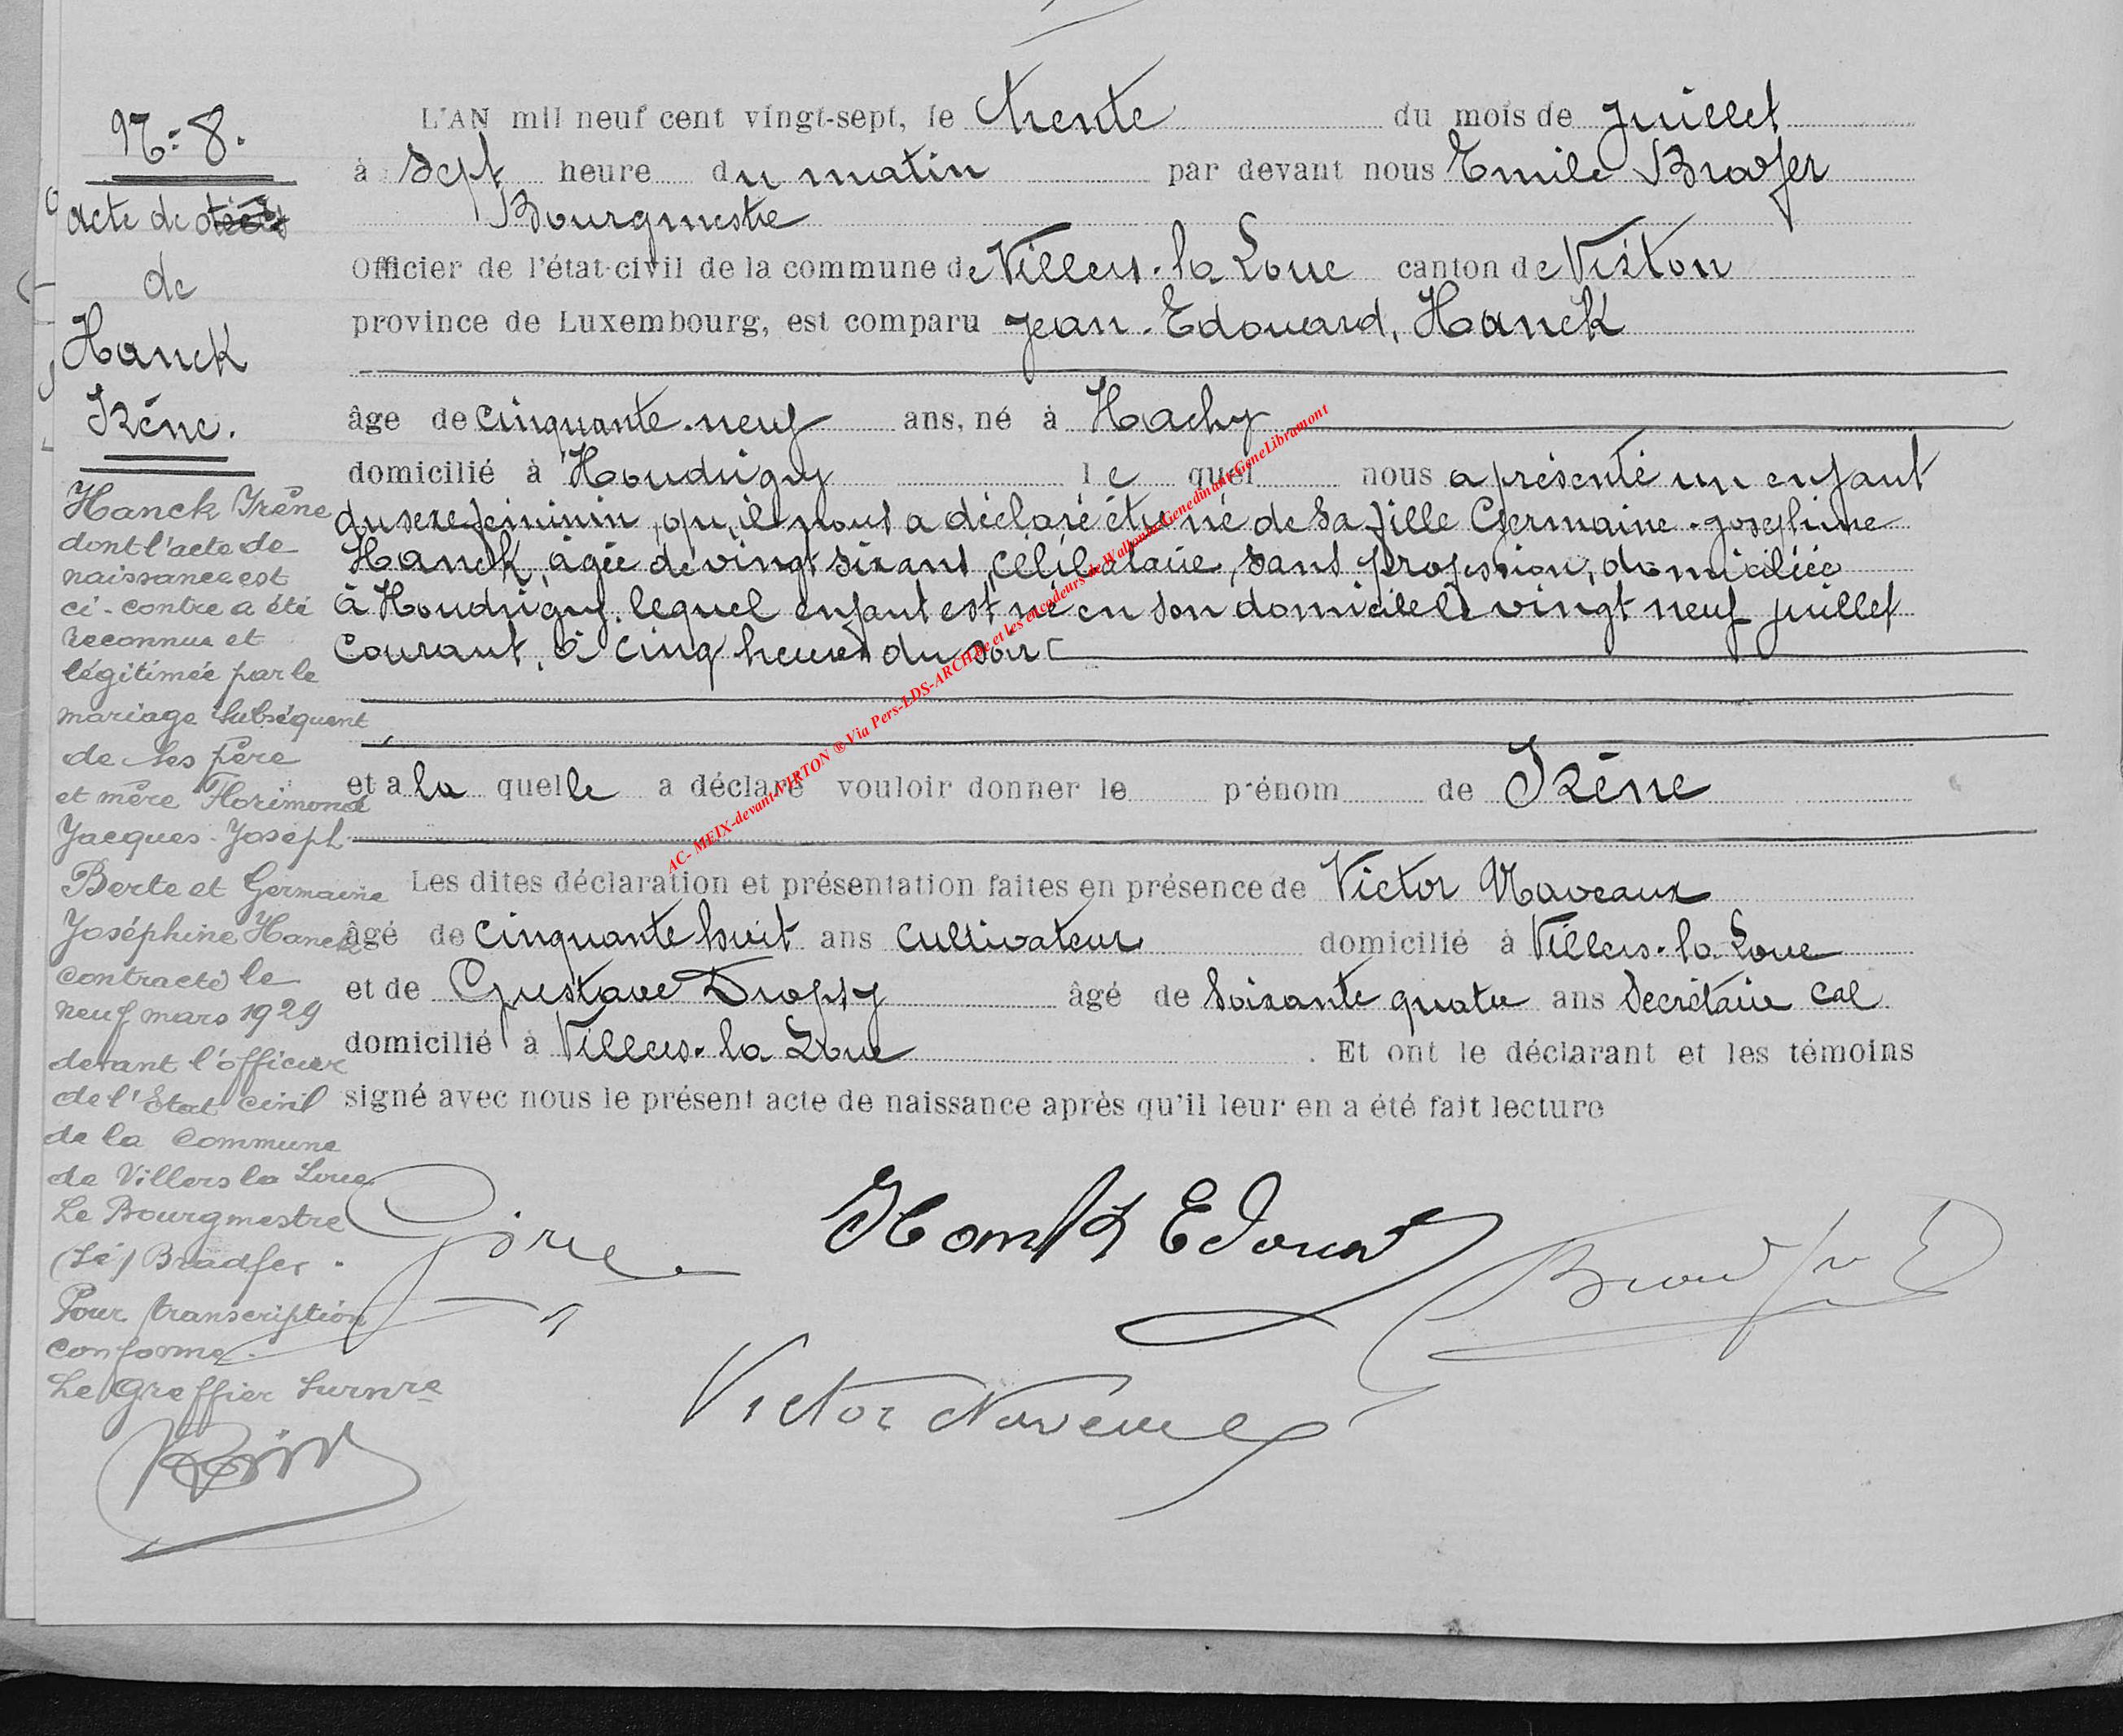 N: 8.
acte de décès
de
Hanck
Irène.
Hanck Irène
dont l'acte de
naissance est
ci-contre a été
reconnue et
légitimée par le
mariage subséquent
de ses père
et mère Florimond
Jacques-Joseph
Berte et Germaine
Joséphine Hanck
contracté le
neuf mars 1929
devant l'officier
de l'Etat civil
de la commune
de Villers la Loue
Le Bourgmestre
(Sé) Bradfer.
Pour transcription
conforme.
Le Greffier Surnre
L'AN mil neuf cent vingt-sept, le trente du mois de juillet
à sept heure du matin par devant nous Emile Bradfer
Bourgmestre
Officier de l'état-civil de la commune de Villers-la Loue canton de Virton
province de Luxembourg, est comparu Jean-Edouard, Hanck
âge de cinquante-neuf ans, né à Hachy
domicilié à Houdrigny le quel nous a présenté un enfant
du sexe féminin, qu'il nous a déclaré être né de sa fille Germaine-Joséphine
Hanck, âgée de vingt six ans, célibataire, sans profession, domiciliée
à Houdrigny. lequel enfant est né en son domicile le vingt neuf juillet
courant, à cinq heures du soir
et a la quelle a déclaré vouloir donner le prénom de Irène
Les dites déclaration et présentation faites en présence de Victor Naveaux
âgé de cinquante huit ans cultivateur domicilié à Villers-la-Loue
et de Gustave Dropsy âgé de soixante quatre ans secrétaire cal
domicilié à Villers-la Loue. Et ont le déclarant et les témoins
signé avec nous le présent acte de naissance après qu'il leur en a été fait lecture
Hanck Edouard
Bradfer E
Victor Naveaux
AC- MEIX-devant-VIRTON ® Via Pers-LDS-ARCH.be et les encodeurs de Wallonia-Genedinant-GeneLibramont